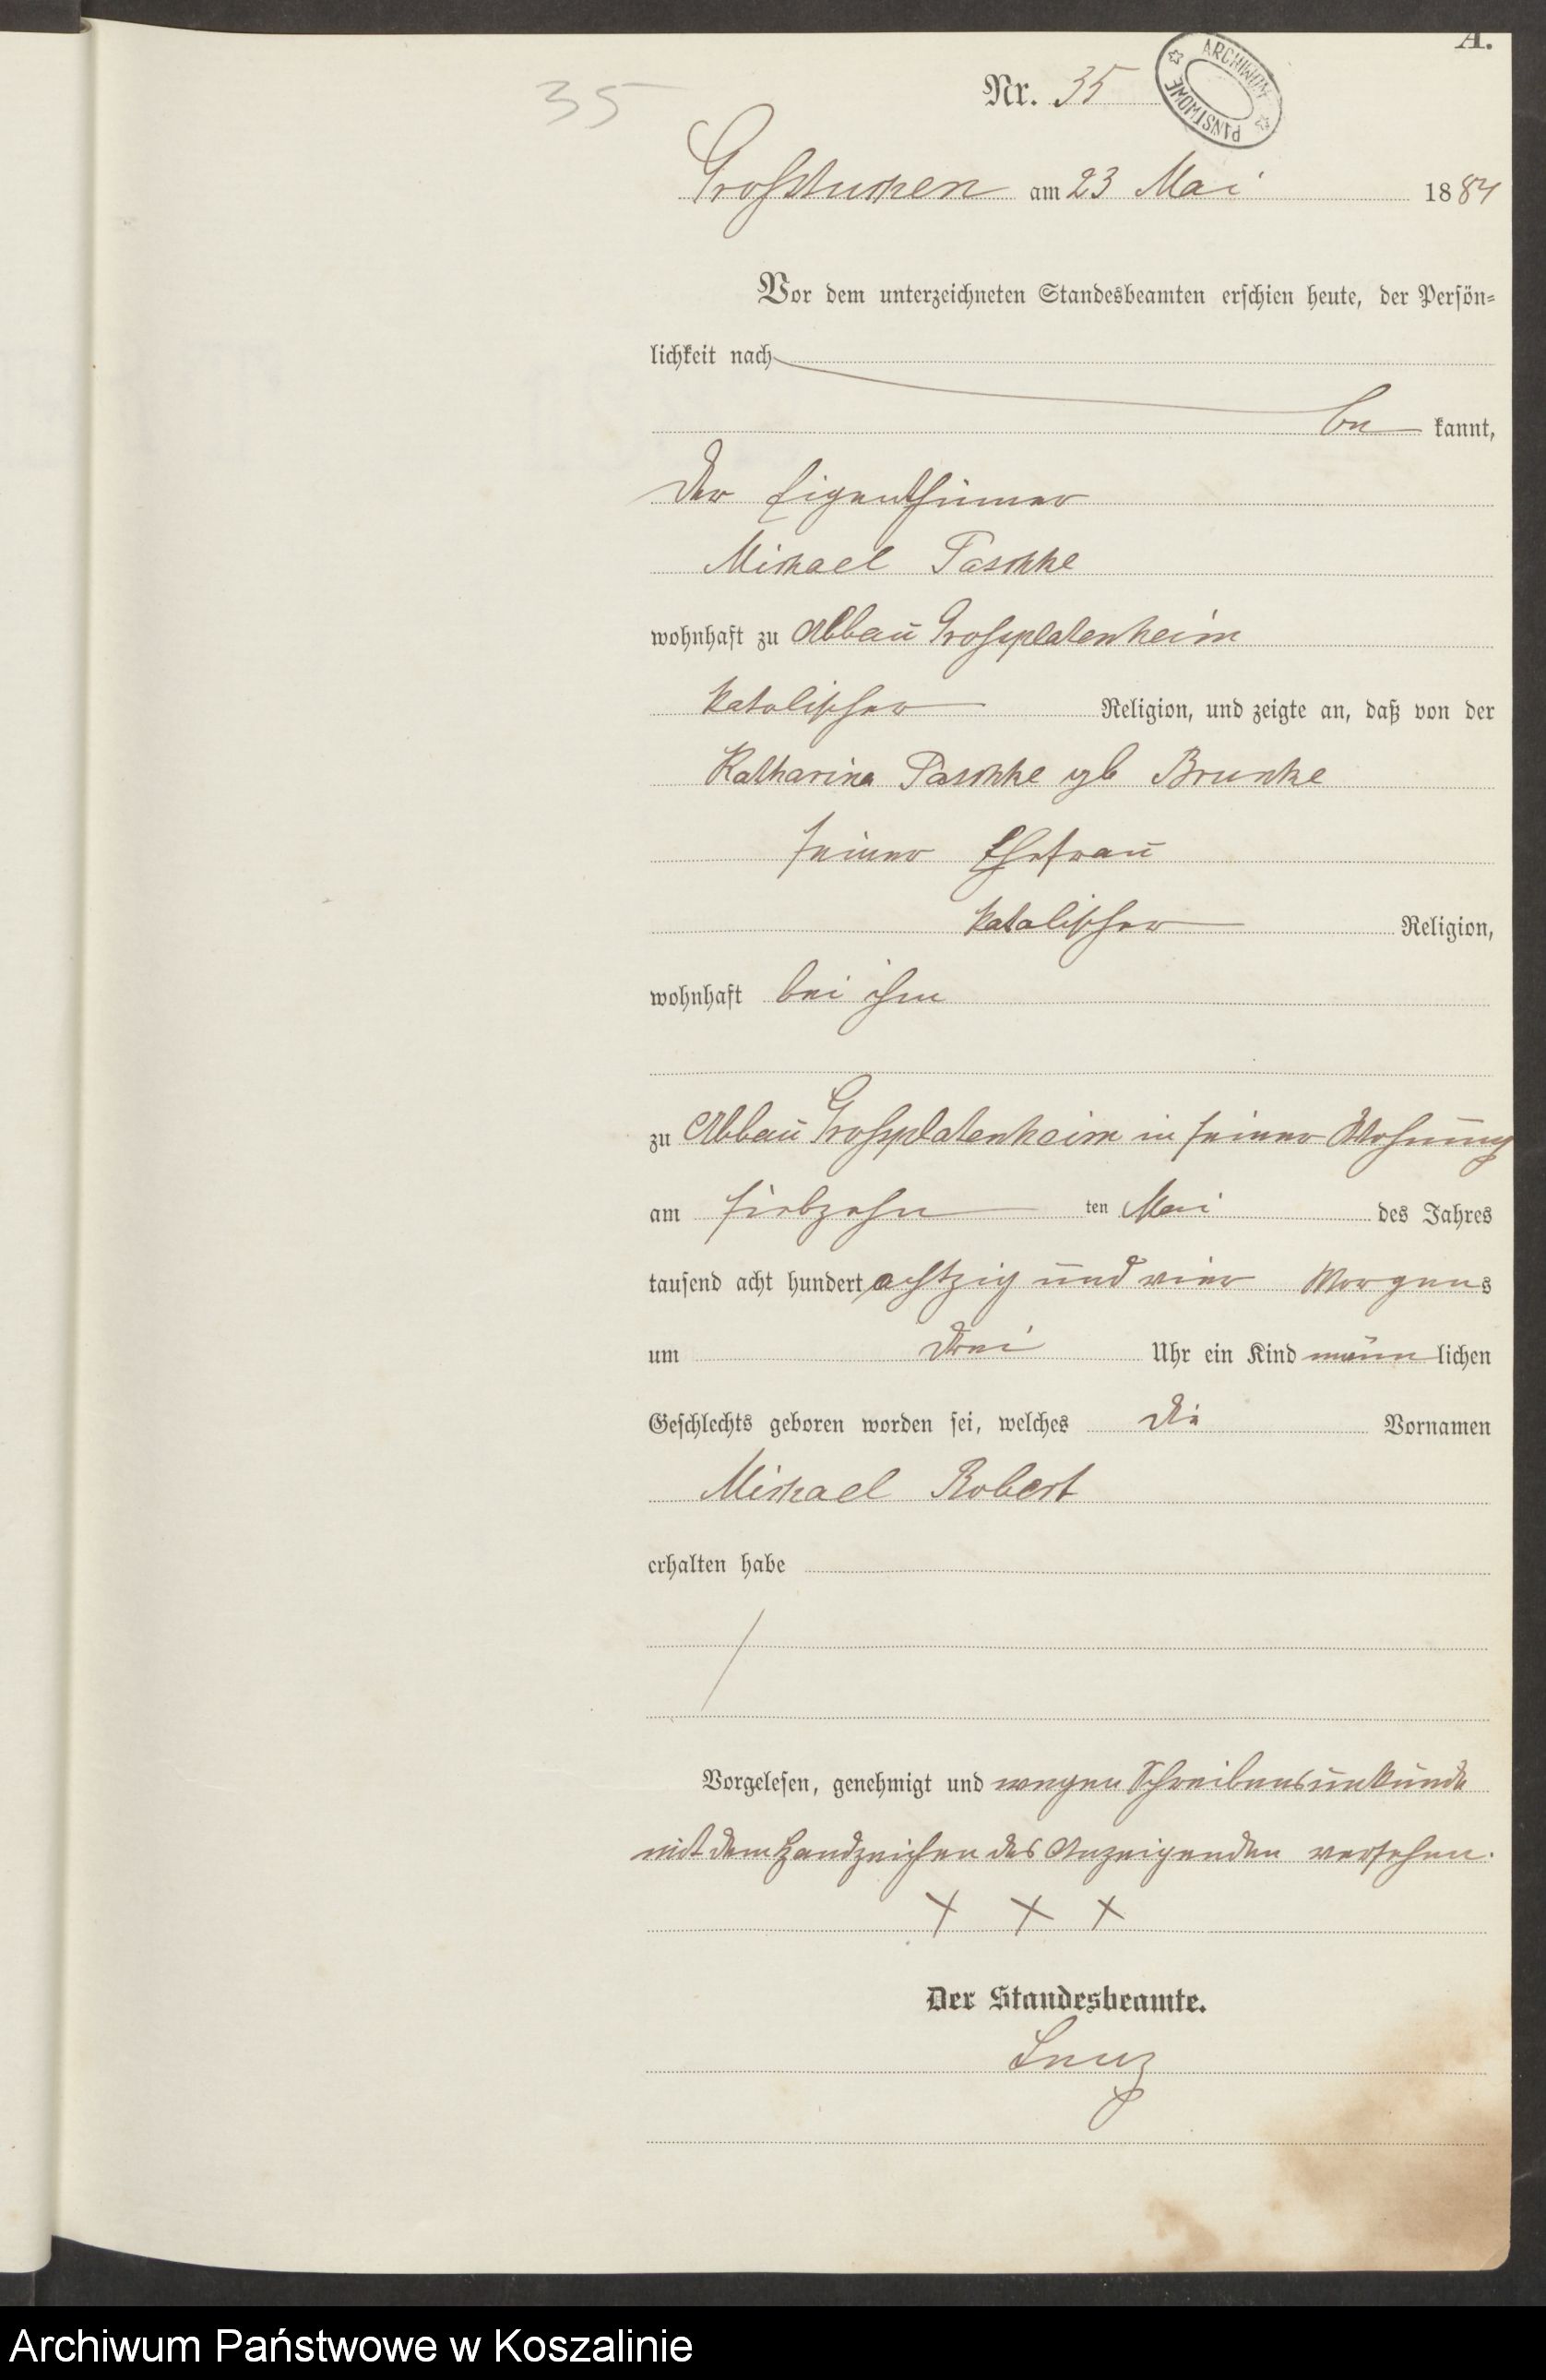 A.
35
Nr. 35
ARCHIWUM PAŃSTWOWE
Grosstuchen am 23 Mai 1884
Vor dem unterzeichneten Standesbeamten erschien heute, der Persön-
lichkeit nach
be kannt,
der Eigenthümer
Michael Paschke
wohnhaft zu Abbau Grossplatenheim
katolischer Religion, und zeigte an, daß von der
Katharina Paschke gb
seiner Ehefrau
katolischer Religion,
wohnhaft bei ihm
zu Abbau Grossplatenheim in seiner Wohnung
am siebzehn ten Mai des Jahres
tausend acht hundert achtzig und vier Morgens
um drei Uhr ein Kind männ lichen
Geschlechts geboren worden sei, welches die Vornamen
Michael Robert
erhalten habe
Vorgelesen, genehmigt und wegen Schreibensunkunde
mit dem Handzeichen des Anzeigenden versehen.
X X X
Der Standesbeamte.
Lenz
Archiwum Państwowe w Koszalinie